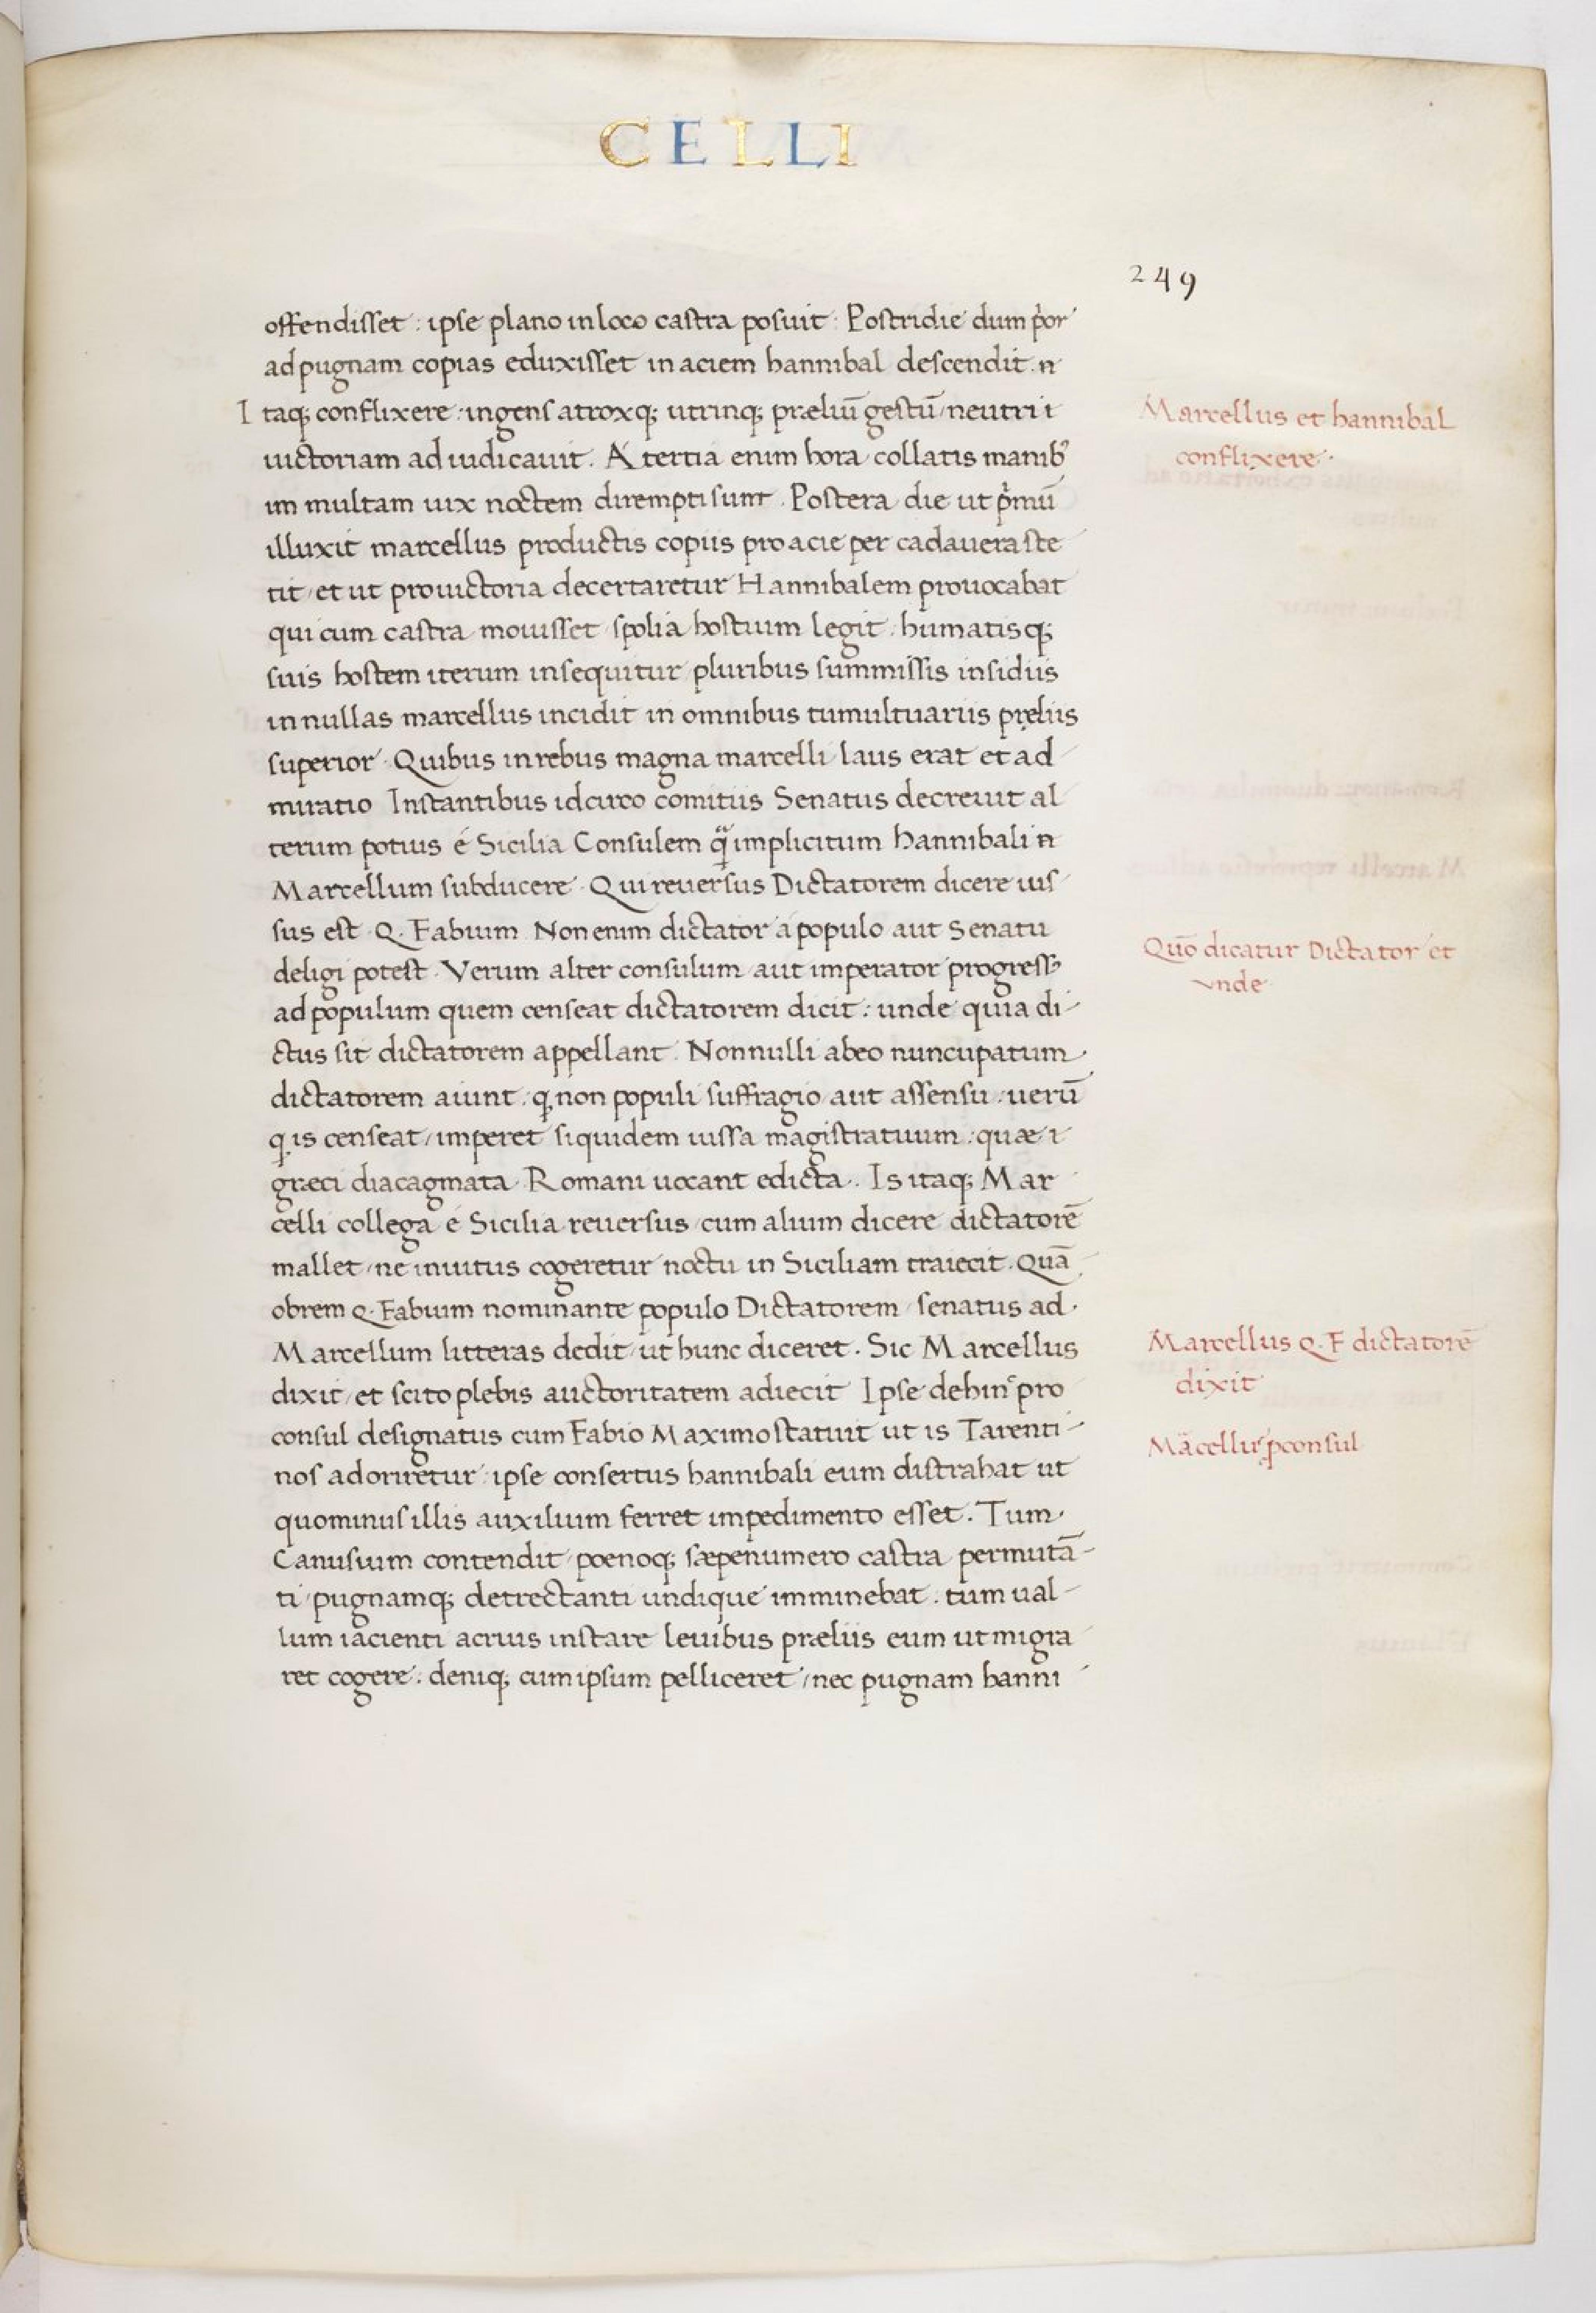 CELLI
249
offendisset : ipse plano in loco castra posuit : Postridie dum pͥor
ad pugnam copias eduxisset in aciem hannibal descendit . n
Itaq; conflixere : ingens atroxq; utrinq; præliū gestū / neutri i
uictoriam ad iudicauit . A tertia enim hora collatis manibꝰ
im multam uix noctem dirempti sunt . Postera die ut pͥmū
illuxit marcellus productis copiis pro acie per cadauera ste
tit / et ut pro uictoria decertaretur Hannibalem prouocabat
qui cum castra mouisset spolia hostium legit : humatisq;
suis hostem iterum insequitur / pluribus summissis insidiis
in nullas marcellus incidit in omnibus tumultuariis pręliis
superior . Quibus in rebus magna marcelli laus erat et ad
miratio Instantibus idcirco comitiis Senatus decreuit al
terum potius é Sicilia Consulem q̈̃ implicitum hannibali n
Marcellum subducere . Qui reuersus Dictatorem dicere ius
sus est . Q . Fabium Non enim dictator a populo aut Senatu
deligi potest . Verum alter consulum aut imperator progressꝰ
ad populum quem censeat dictatorem dicit : unde quia di-
ctus sit dictatorem appellant . Nonnulli ab eo nuncupatum
dictatorem aiunt : ꝙ non populi suffragio / aut assensu : uerū
ꝙ is censeat / imperet siquidem iussa magistratuum : quæ i
græci diacagmata . Romani uocant edicta . Is itaq; Mar
celli collega é Sicilia reuersus / cum alium dicere dictatorē
mallet / ne inuitus cogeretur noctu in Siciliam traiecit . Quā
obrem Q . Fabium nominante populo Dictatorem / senatus ad .
Marcellum litteras dedit / ut hunc diceret . Sic Marcellus
dixit / et scito plebis auctoritatem adiecit Ipse dehinͨ pro
consul designatus cum Fabio Maximo statuit ut is Tarenti-
nos adoriretur : ipse consertus hannibali eum distrahat ut
quominus illis auxilium ferret impedimento esset . Tum
Canusium contendit / poenoq; sæpenumero castra permutā-
ti / pugnamq; detrectanti undique imminebat : tum ual-
lum iacienti acrius instare leuibus præliis eum ut migra
ret cogere : deniq; cum ipsum pelliceret / nec pugnam hanni
Marcellus et hannibal
conflixere .
Quō dicatur Dictator et
vnde
Marcellus Q . F dictatorē
dixit
Mãcellus ꝓconsul